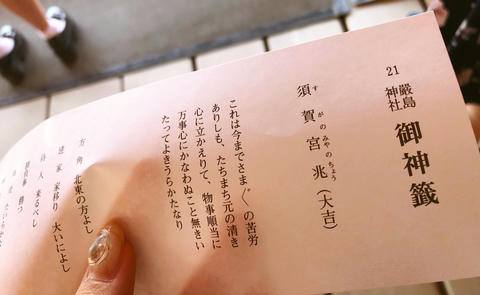 21 嚴島神社 御神籤
須賀宮兆(大吉)
すがのみやのちょう
これは今までさま〲の苦労
ありしも、たちまち元の清き
心に立かえりて、物事順当に
万事心にかなわぬこと無きい
たってよきうらかたなり
方角 北東の方よし
建家 家移り 大いによし
待人 来るべし
勝つ